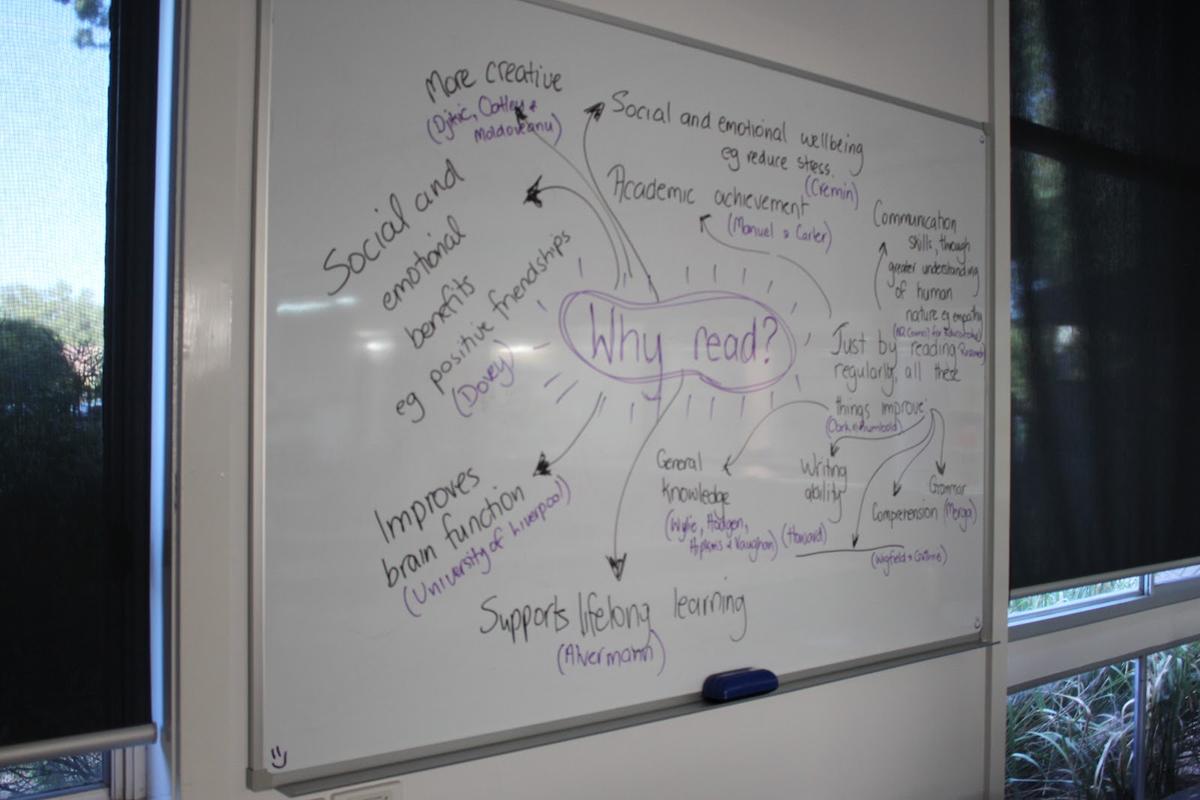 More creative
(Djikic, Oatley &
Moldoveanu)
Social and emotional wellbeing
eg reduce stress.
(Cremin)
Academic achievement
(Manuel & Carter)
Communication
skills, through
greater understanding
of human
nature eg empathy
Social and
emotional
benefits
eg positive friendships
(Dovey)
Why read?
Just by reading
regularly, all these
things improve
General
knowledge
(Wylie, Hodgen,
Hipkins & Vaughan)
Writing
ability
(Howard)
Comprension
Grammar
(Merga)
Improves
brain function
(University of Liverpool)
Supports lifelong learning
(Alvermann)